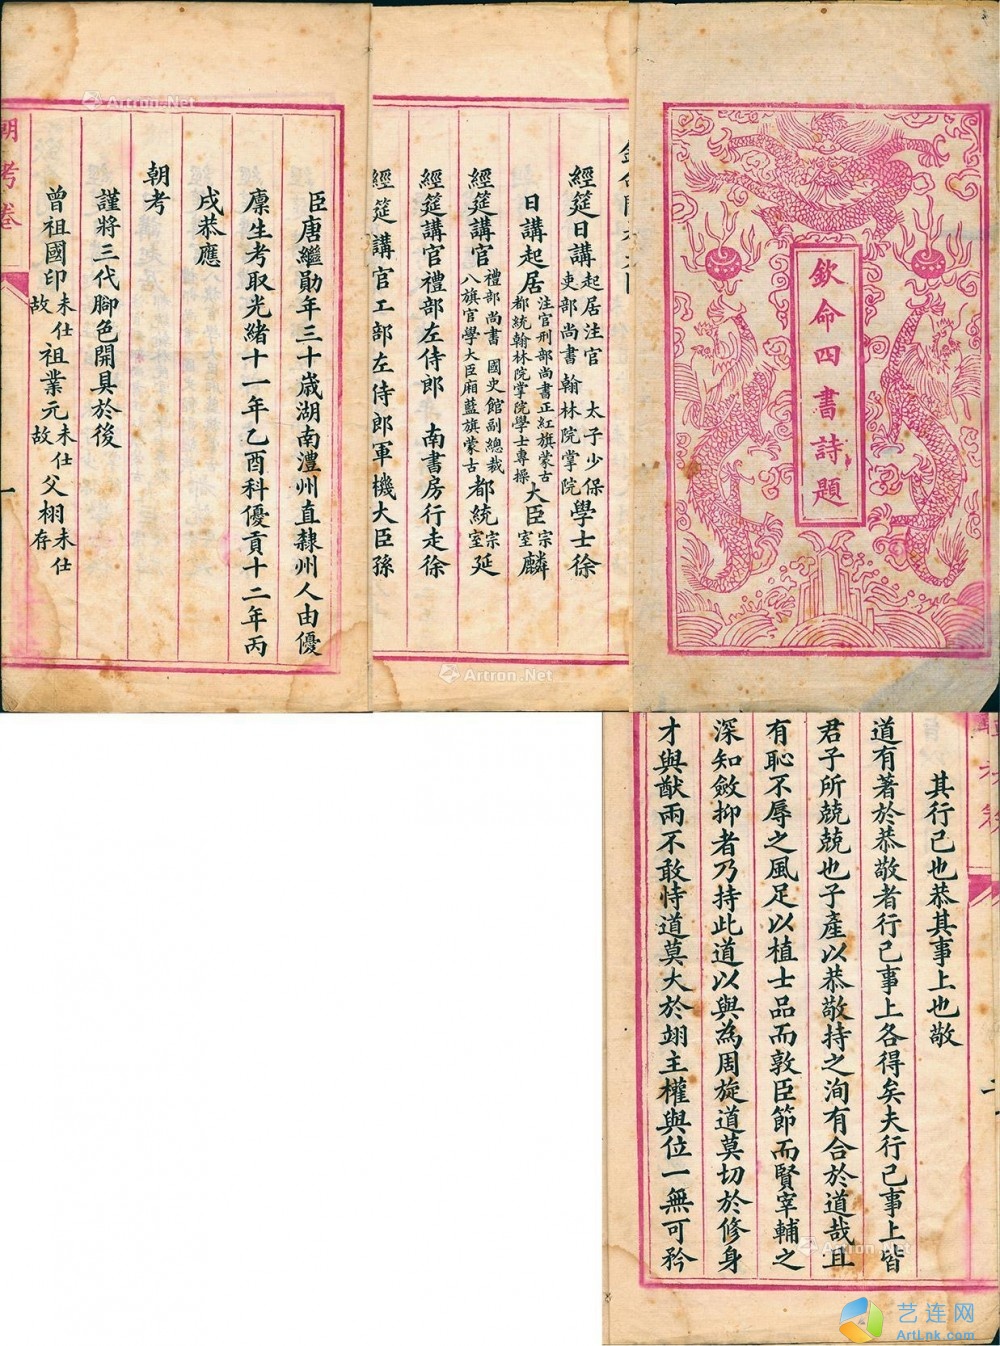 欽命四書詩題
經筵日講起居注官 太子少保吏部尚書翰林院掌院學士徐
日講起居注官刑部尚書正紅旗蒙古都統翰林院掌院學士專操大臣宗室麟
經筵講官禮部尚書 國史館副總裁八旗官學大臣廂藍旗蒙古都統宗室延
經筵講官禮部左侍郎 南書房行走徐
經筵講官工部左侍郎軍機大臣孫
臣唐繼勛年三十歲湖南澧州直隸州人由優
廩生考取光緒十一年乙酉科優貢十二年丙
戌恭應
朝考
謹將三代腳色開具於後
曾祖國印未仕故 祖業元未仕故 父栩未仕存
朝考卷
一
其行己也恭其事上也敬
道有著於恭敬者行己事上各得矣夫行己事上皆
君子所兢兢也子產以恭敬持之洵有合於道哉且
有恥不辱之風足以植士品而敦臣節而賢宰輔之
深知斂抑者乃持此道以與為周旋道莫切於修身
才與猷兩不敢恃道莫大於翊主權與位一無可矜
Artron.Net
Artron.Net
Artron.Net
艺连网
ArtLnk.com